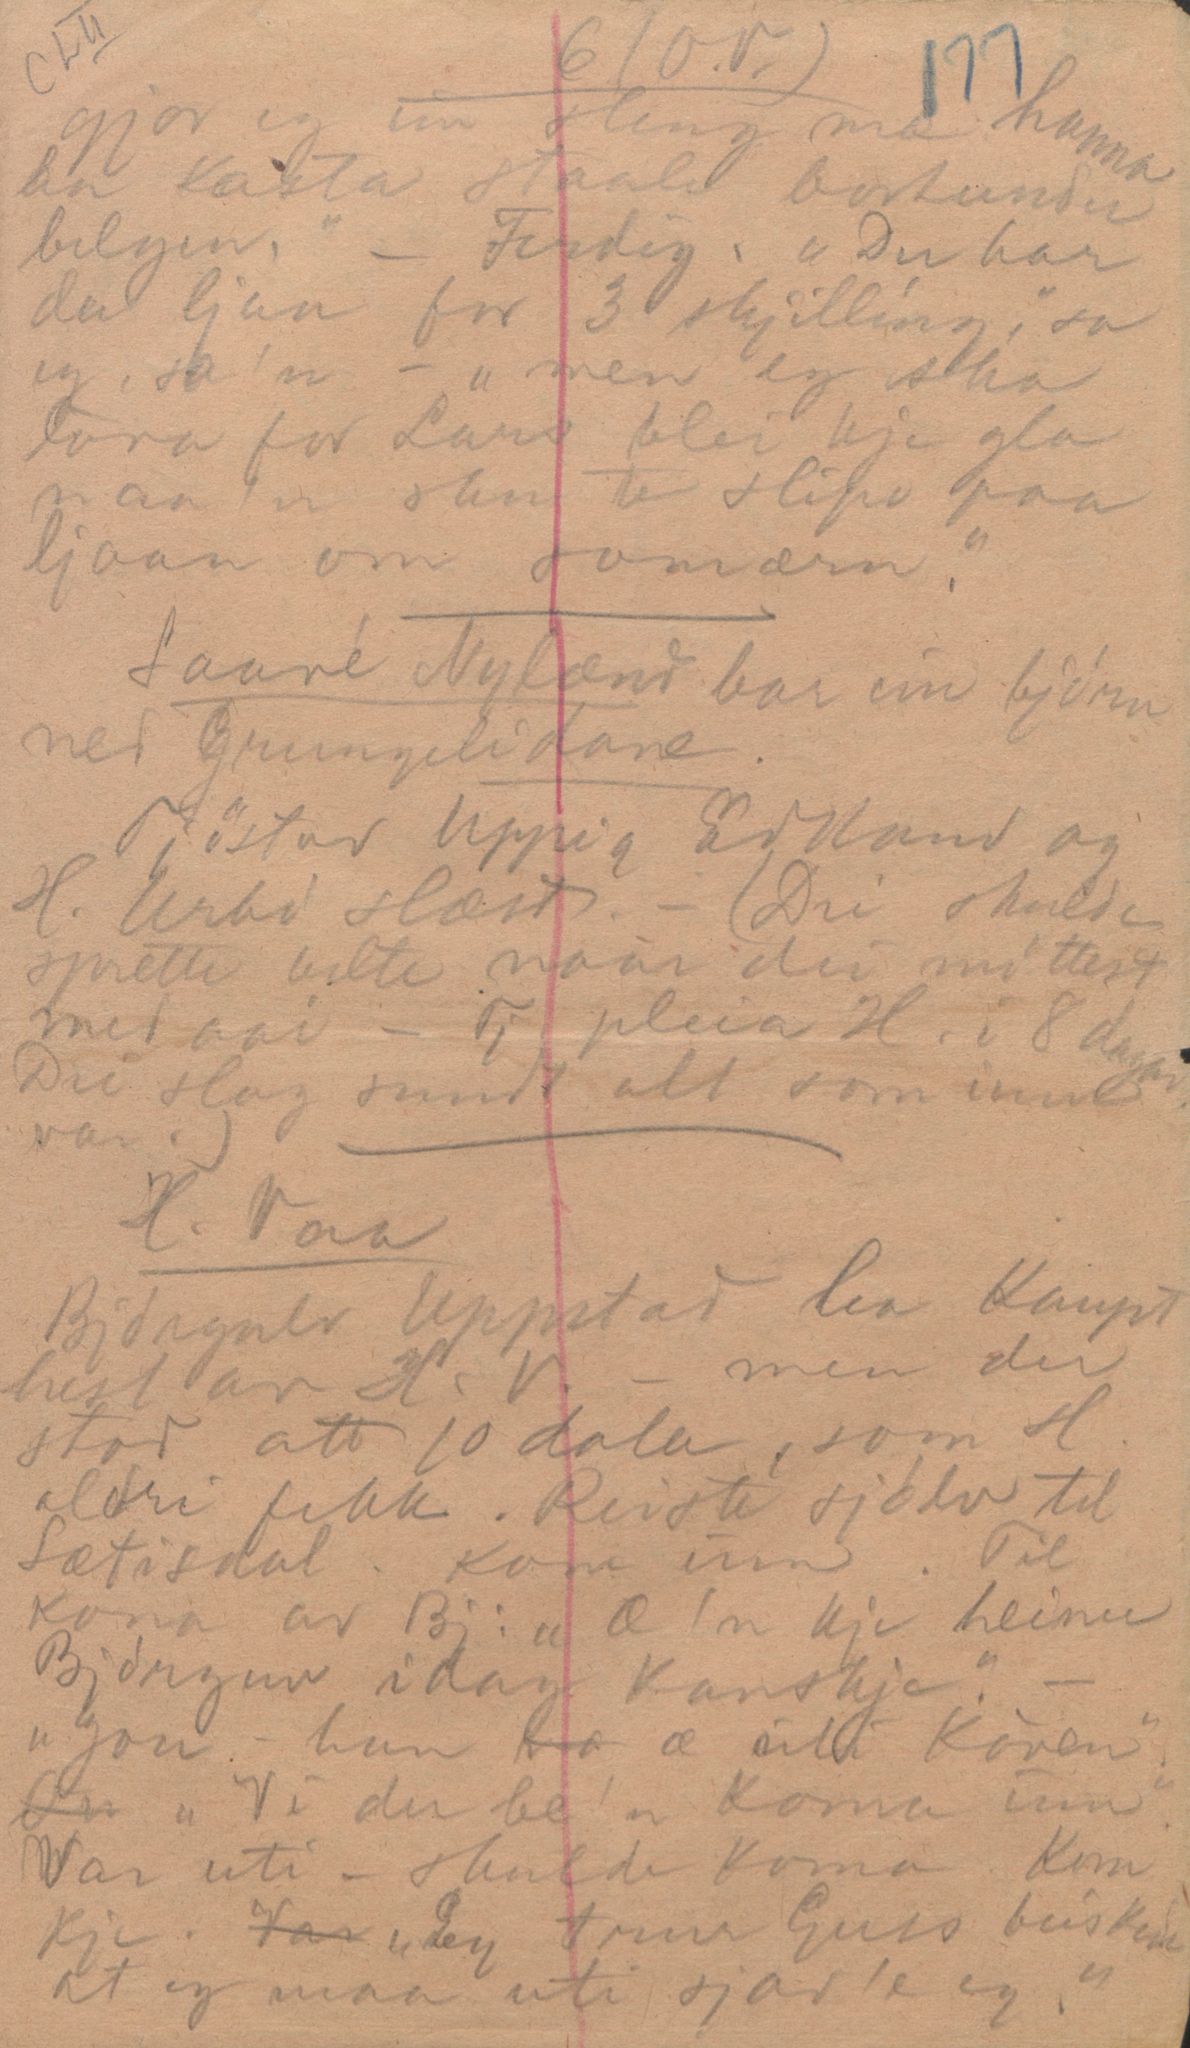 CLII
6 (O.V.) 177
gjor eg ein sleng me hanna
ba kasta staale bortunder
belgen." – Ferdig. "Du har
du ljaa for 3 skjilling," sa
eg, sa'n – "men eg ska
lova for Lars blei kje gla
naa'n sku te slipe paa
ljaan om somærn."
Saave Nylænd bar ein björn
ned Grungelidane.
Tjöstov Uppig Edland og
H. Urbö slæst. – (Dei skulde
sprette belte naar dei möttest
med aai – Tj pleia H. i 8 dagar.
Dei slog sundt alt som inne
var.)
H. Vaa
Björgulv Uppstad kaupt
hest av H. V. – men der
stod att 10 dale, som H.
aldri fekk. Reiste sjölv til
Sætisdal. Kom inn. Til
kona av Bj: "Æ'n kje heime
Björguv idag kanskje". –
"Jou – han va æ uti Kòven".
"Vi du be'n koma inn".
Var uti – skulde koma. Kom
kje. Var "Eg trur Guss beisken
at eg maa uti sjav'e eg."